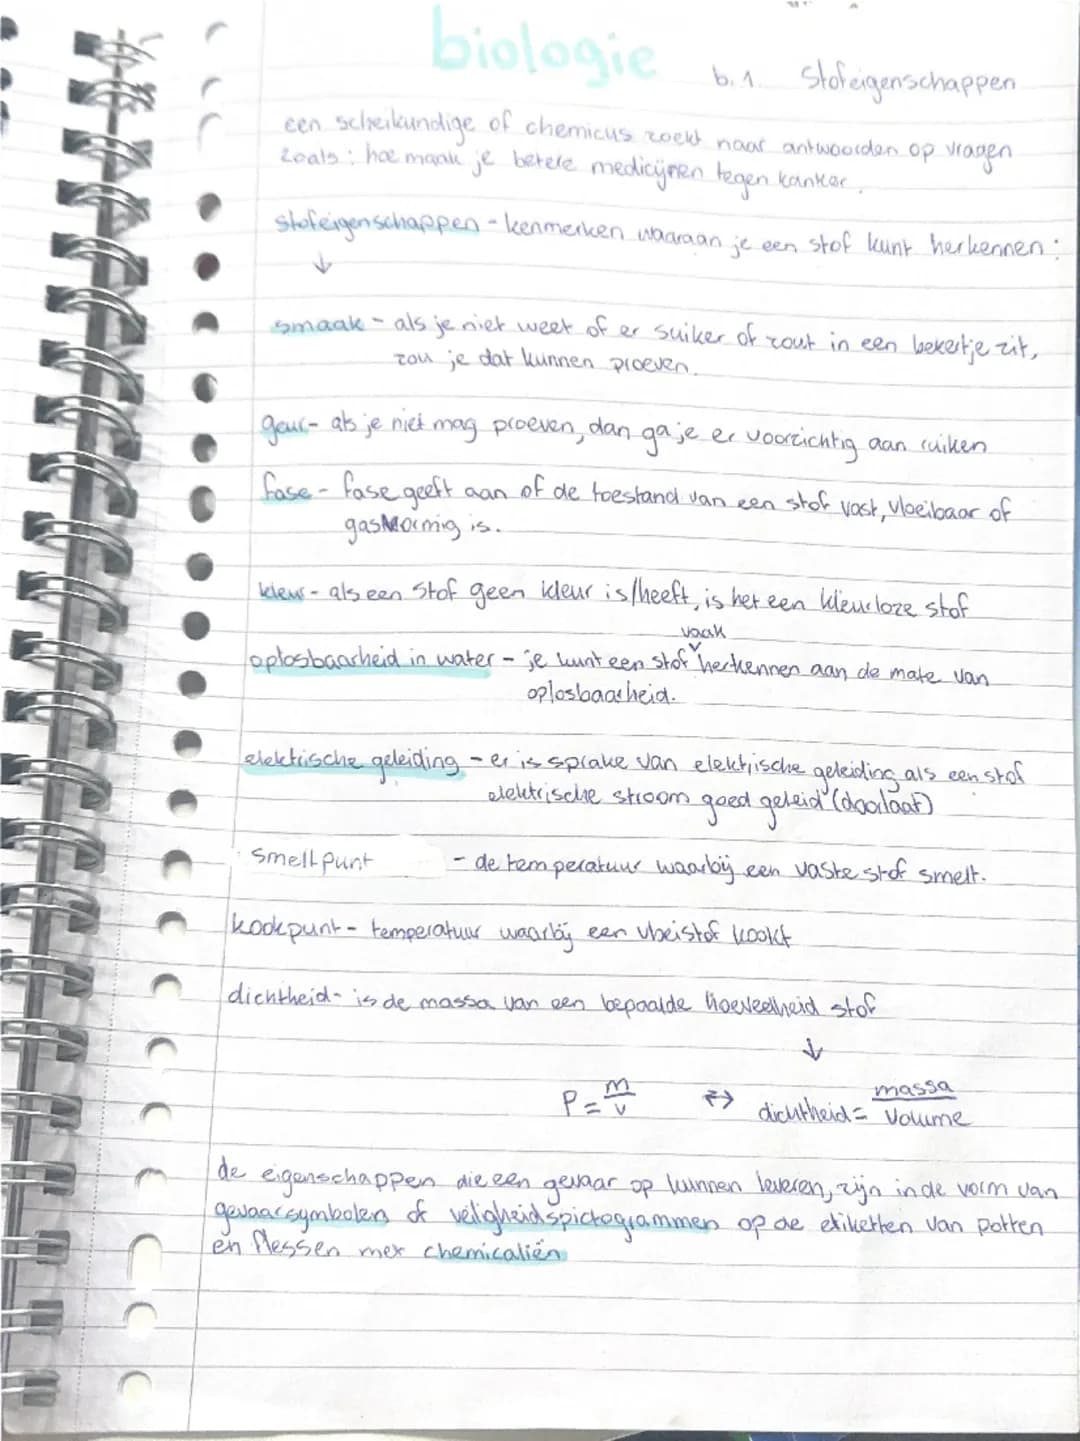 biologie
b.1. Stofeigenschappen
een scheikundige of chemicus zoekt naar antwoorden op vragen
zoals: hoe maak je betere medicijnen tegen kanker.
stofeigenschappen - kenmerken waaraan je een stof kunt herkennen:
↓
smaak - als je niet weet of er suiker of zout in een bekertje zit,
zou je dat kunnen proeven.
geur - als je niet mag proeven, dan ga je er voorzichtig aan ruiken
fase - fase geeft aan of de toestand van een stof vast, vloeibaar of
gasvormig is.
kleur - als een stof geen kleur is/heeft, is het een kleurloze stof
vaak
oplosbaarheid in water - je kunt een stof herkennen aan de mate van
oplosbaarheid.
elektrische geleiding - er is sprake van elektrische geleiding als een stof
elektrische stroom goed geleid (doorlaat)
smeltpunt - de temperatuur waarbij een vaste stof smelt.
kookpunt - temperatuur waarbij een vloeistof kookt
dichtheid - is de massa van een bepaalde hoeveelheid stof
↓
P = m/v ⇄ dichtheid = massa/volume
de eigenschappen die een gevaar op kunnen leveren, zijn in de vorm van
gevaarsymbolen of veiligheidspictogrammen op de etiketten van potten
en flessen met chemicaliën